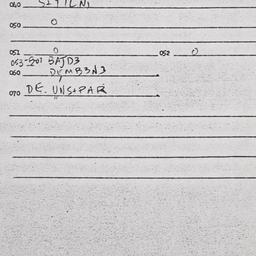 040 SITILNI
050 0
051 0 052 0
053-207 BAJD3
060 DEMB3N3
070 DE. UNS+PAR